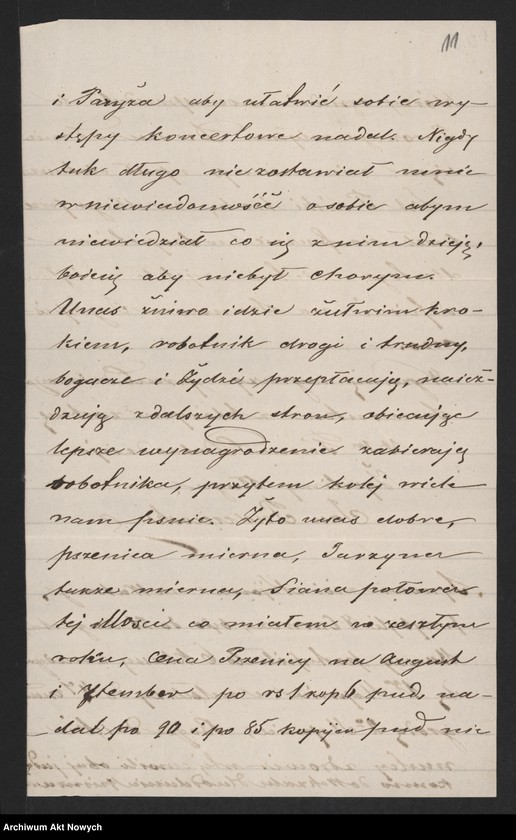 11
i Paryża aby ułatwić sobie wy-
stępy koncertowe nadal. Nigdy
tak długo nie zostawiał mnie
w niewiadomość o sobie abym
niewiedział co się z nim dzieję,
boię aby niebył chorym.
Unas żniwo idzie żułwim kro-
kiem, robotnik drogi i trudny,
bogacze i Żydzi przepłacują, naież-
dzują z dalszych stron, obiecując
lepsze wynagrodzenie zabierają
robotnika, przytem kolej wiele
nam psuie. Żyto unas dobre,
pszenica mierna, Jarzyna
także mierna, Siana połowa
tej illości co miałem w zeszłym
roku, cena Pszenicy na August
i 7tember po rs 1 kop 6 pud, na-
dal po 90 i po 85 kopijek pud nie
Archiwum Akt Nowych